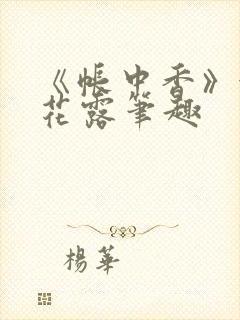 《帳中香》
花露筆趣
楊華